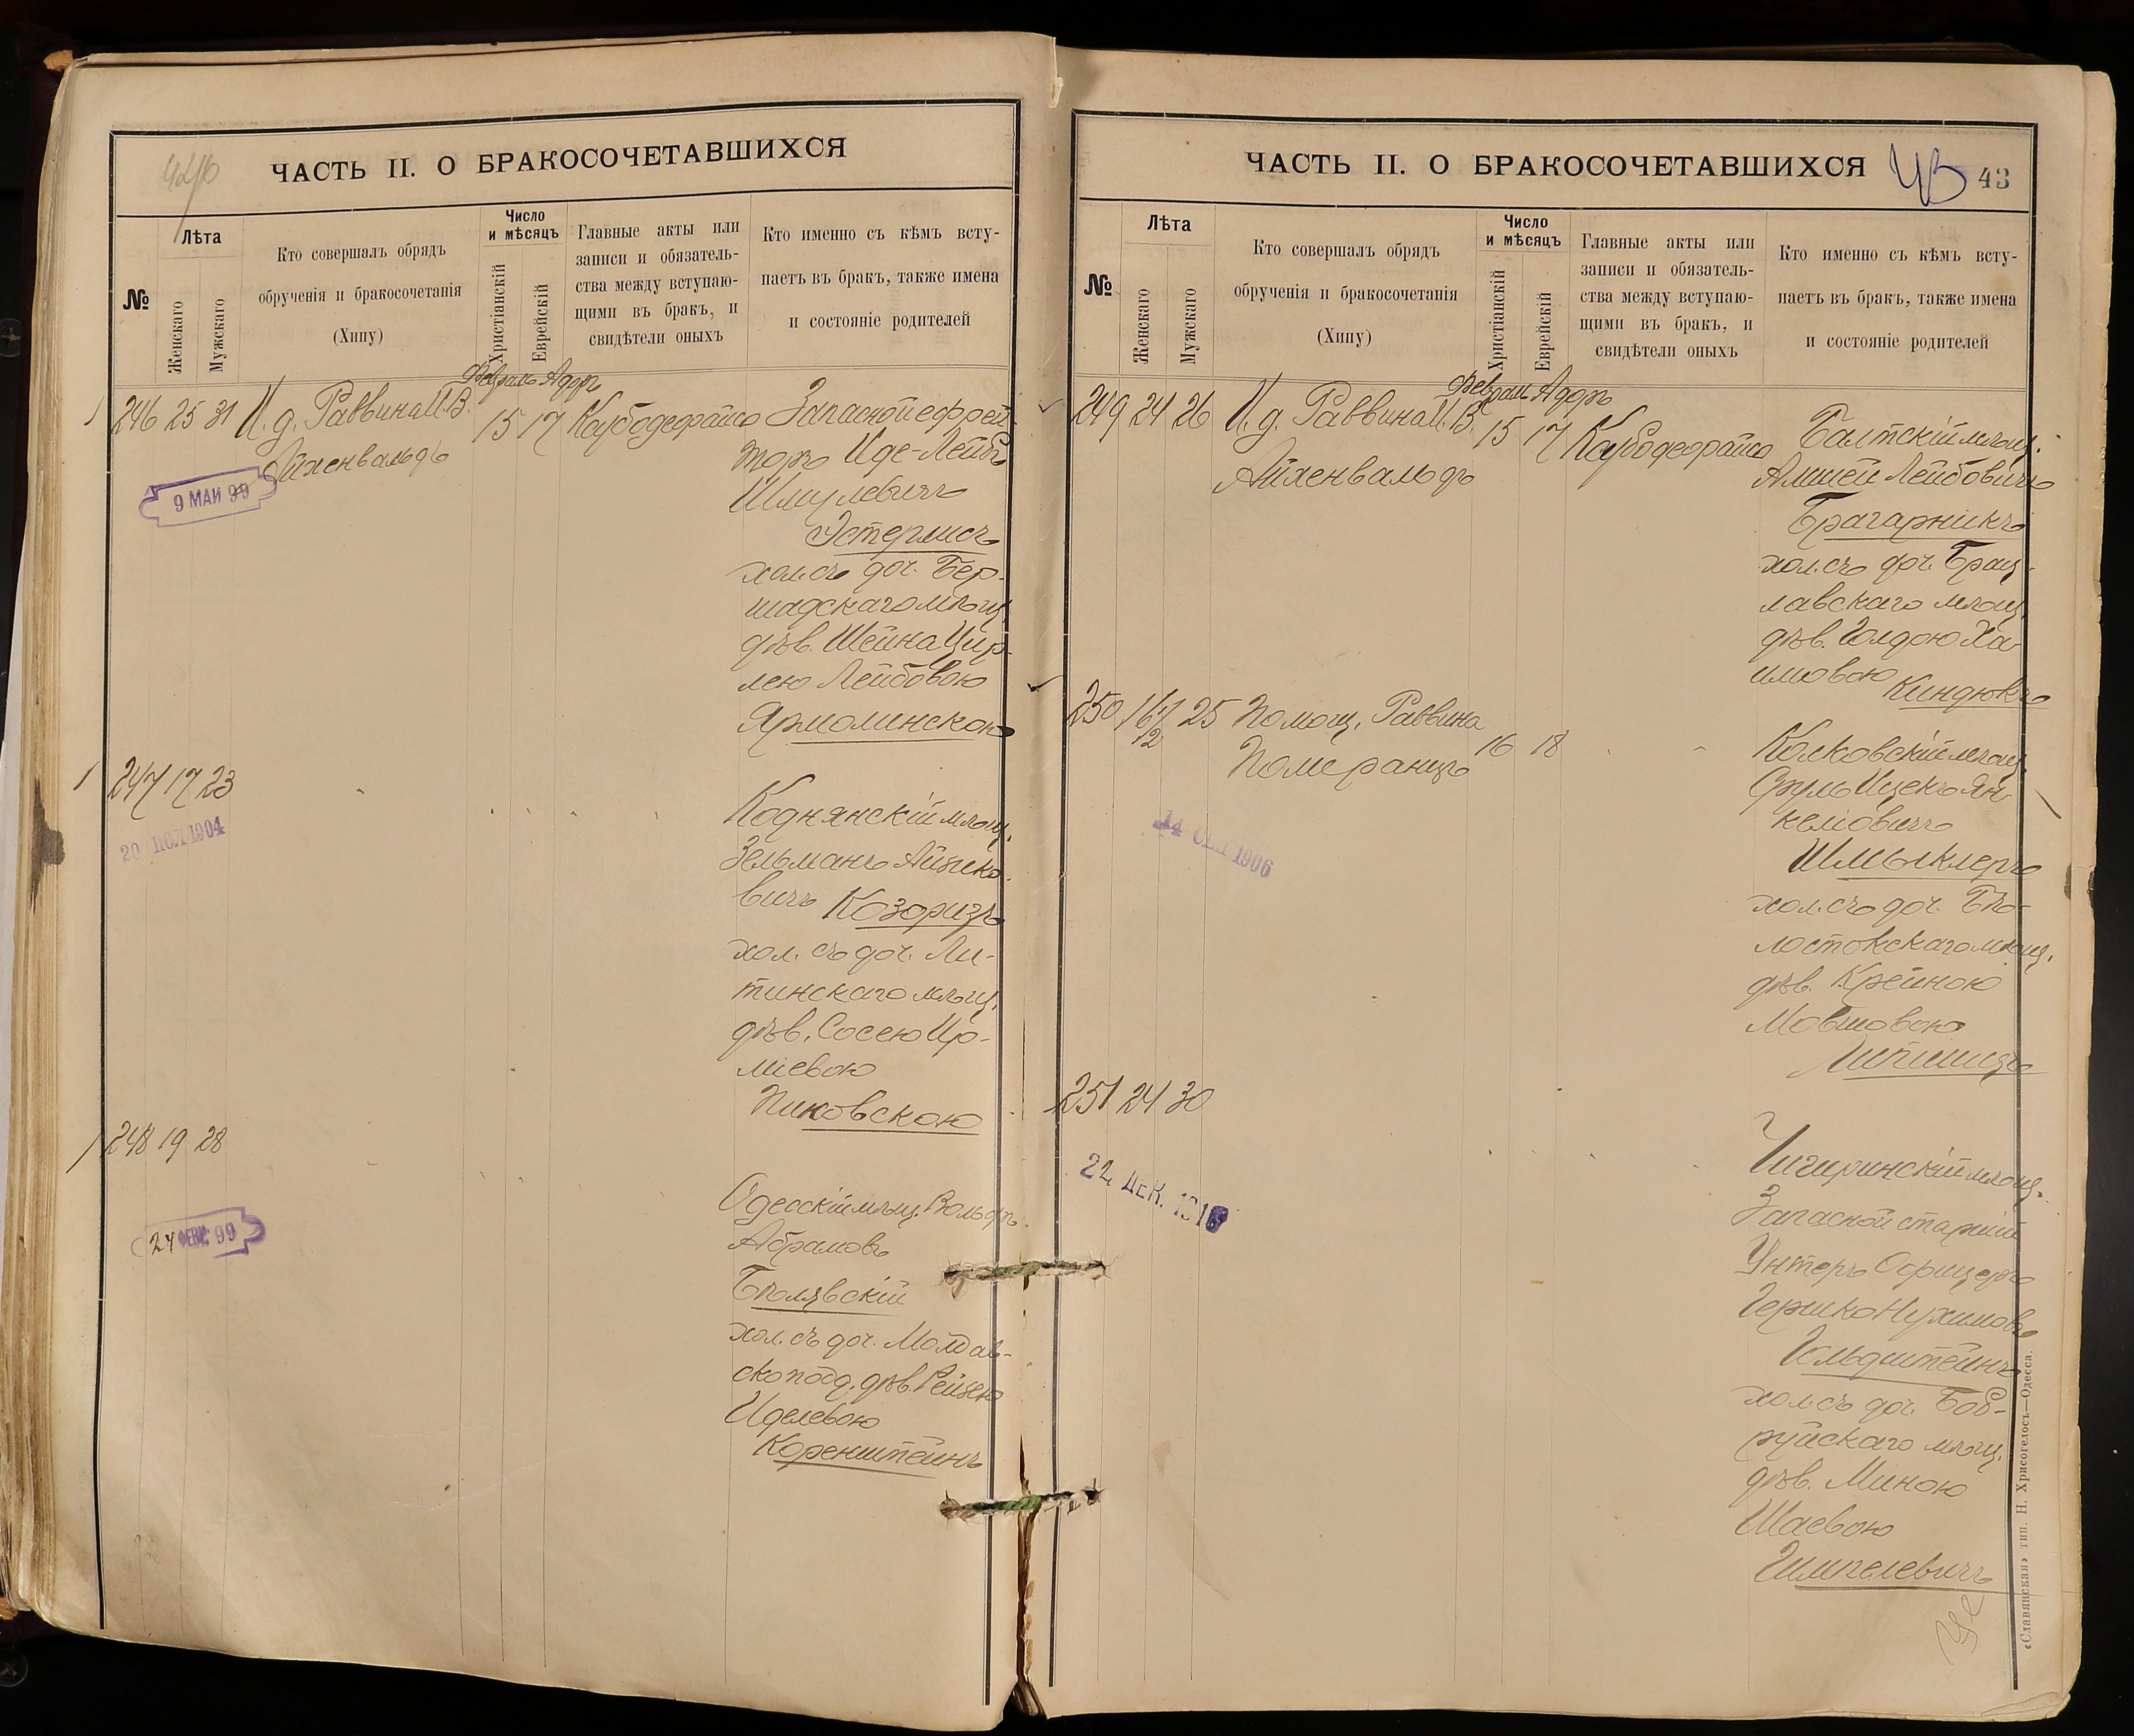 42/б
ЧАСТЬ II. О БРАКОСОЧЕТАВШИХСЯ
№
Лѣта
Женскаго
Мужскаго
Кто совершалъ обрядъ
обрученія и бракосочетанія
(Хипу)
Число
и мѣсяцъ
Христіанскій
Еврейскій
Главные акты или
записи и обязатель-
ства между вступаю-
щими въ бракъ, и
свидѣтели оныхъ
Кто именно съ кѣмъ всту-
паетъ въ бракъ, также имена
и состояніе родителей
Февраль Адоръ
246 25 31 И. д. Раввина М. В. 15 17 Запасной ефрей-
Айхенвальдъ торъ Иде-Лейбъ
9 МАИ 99
Шмулевичъ
Эстерлисъ
хол. съ доч. Бер-
шадскаго мѣщ.
дѣв. Шейна Цир-
лею Лейбовою
Ярмолинскою
247 17 23
20 ІЮЛ 1904
Коднянскій мѣщ.
Зельманъ Айзико-
вичъ Козоризъ
хол. съ доч. Ли-
тинскаго мѣщ.
дѣв. Сосею Ср-
міевою
Пиковскою
248 19 28
24 ФЕВР. 99
Одесскій мѣщ. Вольфъ
Абрамовъ
Бѣлявскій
хол. съ доч. Молдав-
ско подд. дѣв. Рейзею
Иделевою
Коренштейнъ
ЧАСТЬ II. О БРАКОСОЧЕТАВШИХСЯ
43
№
Лѣта
Женскаго
Мужскаго
Кто совершалъ обрядъ
обрученія и бракосочетанія
(Хипу)
Число
и мѣсяцъ
Христіанскій
Еврейскій
Главные акты или
записи и обязатель-
ства между вступаю-
щими въ бракъ, и
свидѣтели оныхъ
Кто именно съ кѣмъ всту-
паетъ въ бракъ, также имена
и состояніе родителей
Февраль Адоръ
249 24 26 И. д. Раввина М. В. 15 17 Балтскій мѣщ.
Айхенвальдъ Алшей Лейбовичъ
Брагарникъ
хол. съ доч. Брац-
лавскаго мѣщ.
дѣв. Голдою Ха-
имовою Киндюкъ
250 16 1/12 25 Помощ. Раввина 16 18 Колковскій мѣщ.
Померанцъ Срулъ Ицекъ Ян-
келіовичъ
14 СЕН 1906
Шмыклеръ
хол. съ доч. Бѣ-
лостокскаго мѣщ.
дѣв. Крейною
Мовшовою
Липшицъ
251 24 30
22 ДЕК. 191
Чигиринскій мѣщ.
Запасной старшій
Унтеръ Офицеръ
Гершко Нухимовъ
Гольдштейнъ
хол. съ доч. Боб-
руйскаго мѣщ.
дѣв. Миною
Шаевою
Гимпелевичъ
«Славянская» тип. Н. Хрисогелосъ—Одесса.